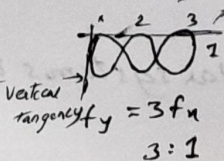 2 3
1
Vertical
tangency fy = 3fx
3 : 1